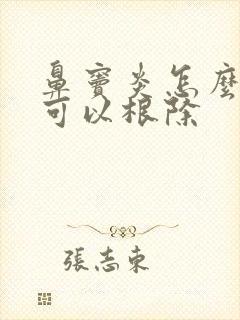 鼻竇炎怎麼
可以根除
張志東